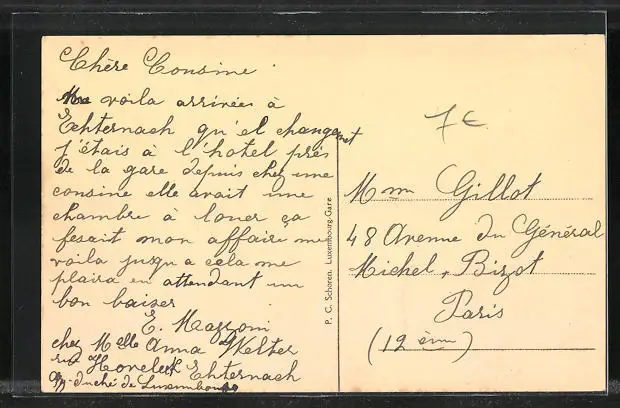 Chère Cousine
Me voila arrivées à
Echternach qu'el changement
j'étais à l'hotel prés
de la gare depuis chez une
cousine elle avait une
chambre à louer ça
fesait mon affaire me
voila jusqu a cela me
plaira en attendant un
bon baiser
E. Mazzoni
chez Melle Anna Welter
rue Hoveleck Echternach
Gr-duché de Luxembourg
P. C. Schoren, Luxembourg-Gare
7€
Mme Gillot
48 Avenue du Général
Michel, Bizot
Paris
(12 ème)